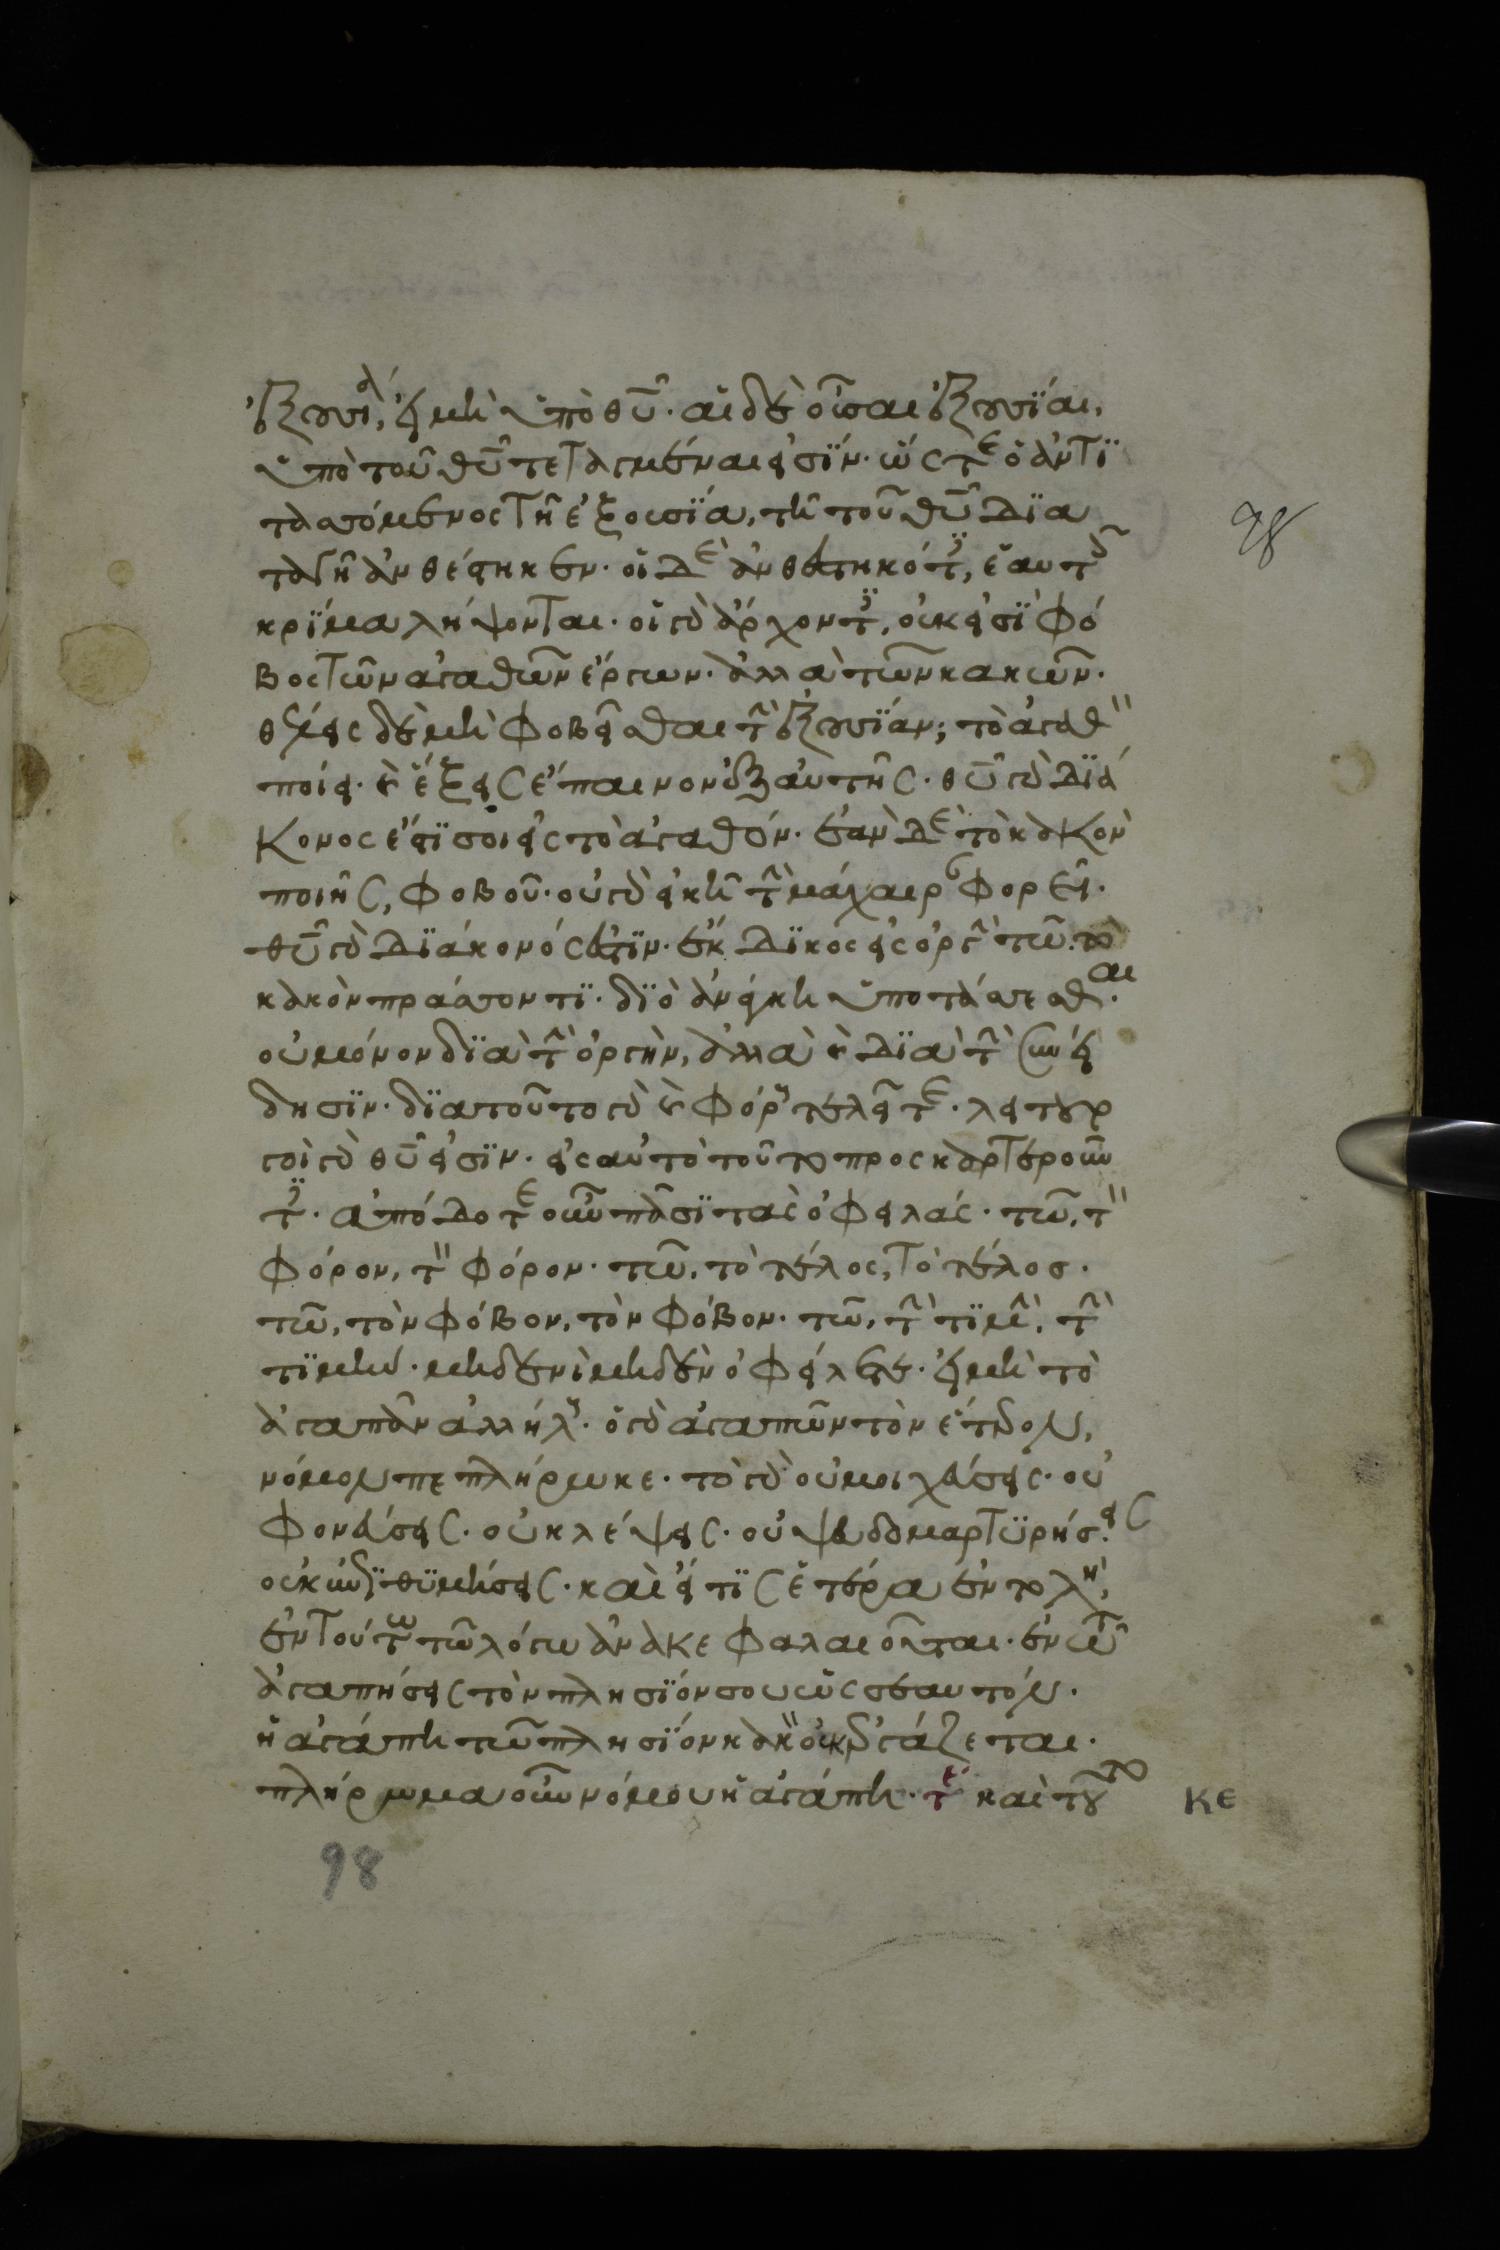 ἐξουσία, εἰ μὴ ὑπὸ θυ̅. αἱ δὲ οὖσαι ἐξουσΐαι,
ὑπὸ τοῦ θυ̅ τεταγμέναι εἰσΐν. ὥς τε ὁ ἀντϊ
τασσόμενος τῆ ἐξουσΐα, τῆ τοῦ θυ̅ δϊα
ταγῆ ἀνθέστηκεν. οἱ δὲ ἀνθεστηκότες, ἑαυτοῖς
κρΐμα λήψονται. οἱ γὰρ ἄρχοντες, οὐκ εἰσῒ φό
βος τῶν ἀγαθῶν ἔργων. ἀλλὰ τῶν κακῶν.
θέλεις δὲ μὴ φοβεῖσθαι τὴν ἐξουσΐαν; τὸ ἀγαθὸν
ποίει. καὶ ἕξεις ἔπαινον ἐξ αὐτῆς. θυ̅ γὰρ δϊά
κονος ἐστΐ σοι εἰς τὸ ἀγαθόν. ἐὰν δὲ τὸ κακὸν
ποιῆς, φοβοῦ. οὐ γὰρ εἰκῆ τὴν μάχαιραν φορεῖ.
θυ̅ γὰρ δϊάκονός ἐστϊν. ἔκδϊκος εἰς ὀργὴν τῶ τὸ
κακὸν πράσσοντϊ. δϊὸ ἀνάγκη ὑποτάσσεσθαι.
οὐ μόνον δϊὰ τὴν ὀργὴν, ἀλλὰ καὶ δϊὰ τὴν συνεί
δησϊν. δϊατοῦτο γὰρ καὶ φόρους τελεῖτε. λειτουρ
γοὶ γὰρ θυ̅ εἰσΐν. εἰς αὐτὸ τοῦτο προσκαρτεροῦν
τες. ἀπόδοτε οὖν πᾶσϊ τὰς ὀφειλάς. τῶ, τὸν
φόρον, τὸν φόρον. τῶ, τὸ τέλος, τὸ τέλος.
τῶ, τὸν φόβον, τὸν φόβον. τῶ, τὴν τϊμὴν, τὴν
τϊμήν. μηδενὶ μηδὲν ὀφείλετε. εἰ μὴ τὸ
ἀγαπᾶν ἀλλήλους. ὁ γὰρ ἀγαπῶν τὸν ἕτερον,
νόμον πεπλήρωκε. τὸ γὰρ οὐ μοιχεύσεις. οὐ
φονεύσεις. οὐ κλέψεις. οὐ ψευδομαρτϋρήσεις.
οὐκ ἐπϊθϋμήσεις. καὶ εἴ τϊς ἑτέρα ἐντολὴ,
ἐν τούτω τῶ λόγω ἀνακεφαλαιοῦται. ἐν τῶ
ἀγαπήσεις τὸν πλησΐον σου ὡς σεαυτόν.
ἡ ἀγάπη τῶ πλησΐον κακὸν οὐκ ἐργάζεται.
πλήρωμα οὖν νόμου ἡ ἀγάπη. τε καὶ τοῦτο
κε
98
98